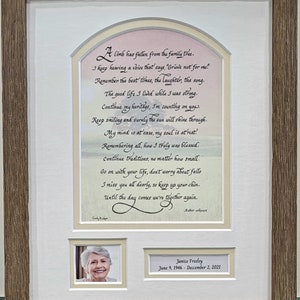 A limb has fallen from the family tree.
I keep hearing a voice that says, "Grieve not for me."
Remember the best times, the laughter, the song.
The good life I lived while I was strong.
Continue my heritage, I'm counting on you.
Keep smiling and surely the sun will shine through.
My mind is at ease, my soul is at rest.
Remembering all, how I truly was blessed.
Continue traditions, no matter how small.
Go on with your life, don't worry about falls
I miss you all dearly, so keep up your chin.
Until the day comes we're together again.
Author unknown
Janice Freeley
June 9, 1946 - December 2, 2021